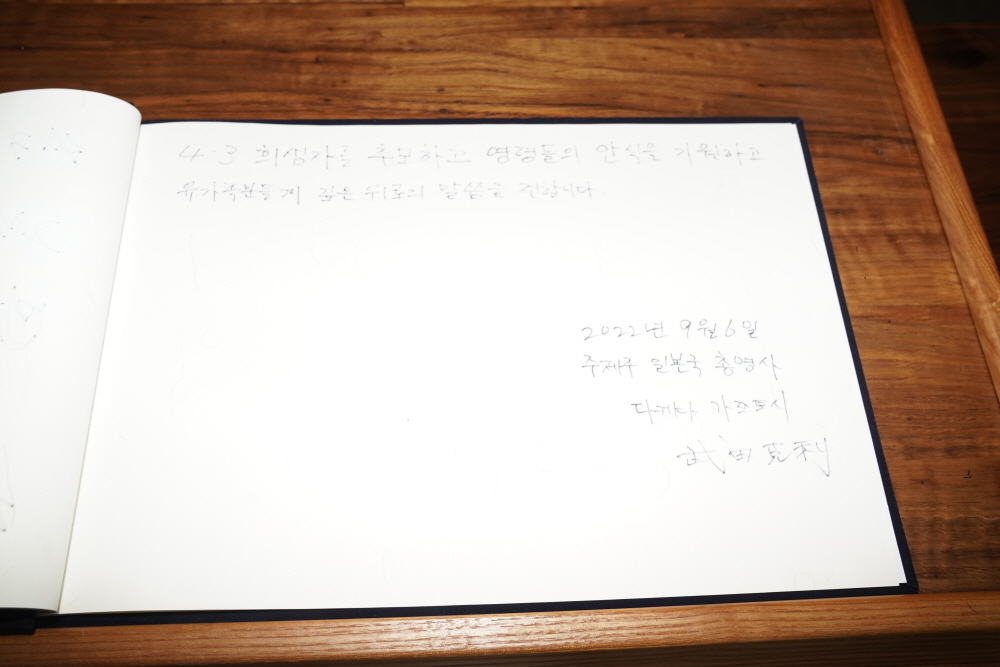 4·3 희생자를 추모하고 영령들의 안식을 기원하고
유가족분들게 깊은 위로의 말씀을 전합니다.
2022년 9월 6일
주제주 일본국 총영사
다케다 가쯔토시
武田克利